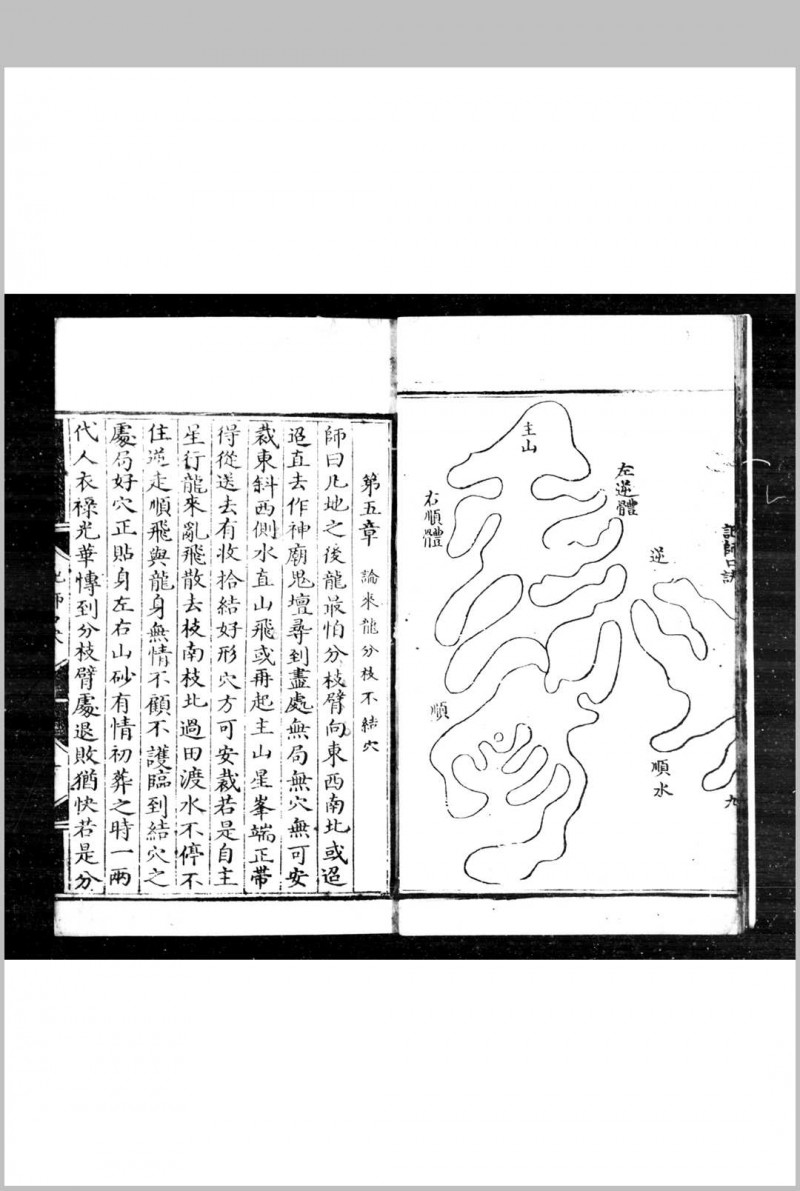 主山
左逆體
右順體
逆
順
順水
九
第五章 論來龍分枝不結穴
師曰凡地之後龍最怕分枝臂向東西南北或迢
迢直去作神廟鬼壇尋到盡處無局無穴無可安
裁東斜西側水直山飛或再起主山星峯端正帶
得從送去有收拾結好形穴方可安裁若是自主
星行龍來亂飛散去枝南枝北過田渡水不停不
住逆走順飛與龍身無情不顧不護臨到結穴之
處局好穴正貼身左右山砂有情初葬之時一兩
代人衣祿光華慱到分枝臂處退敗猶快若是分